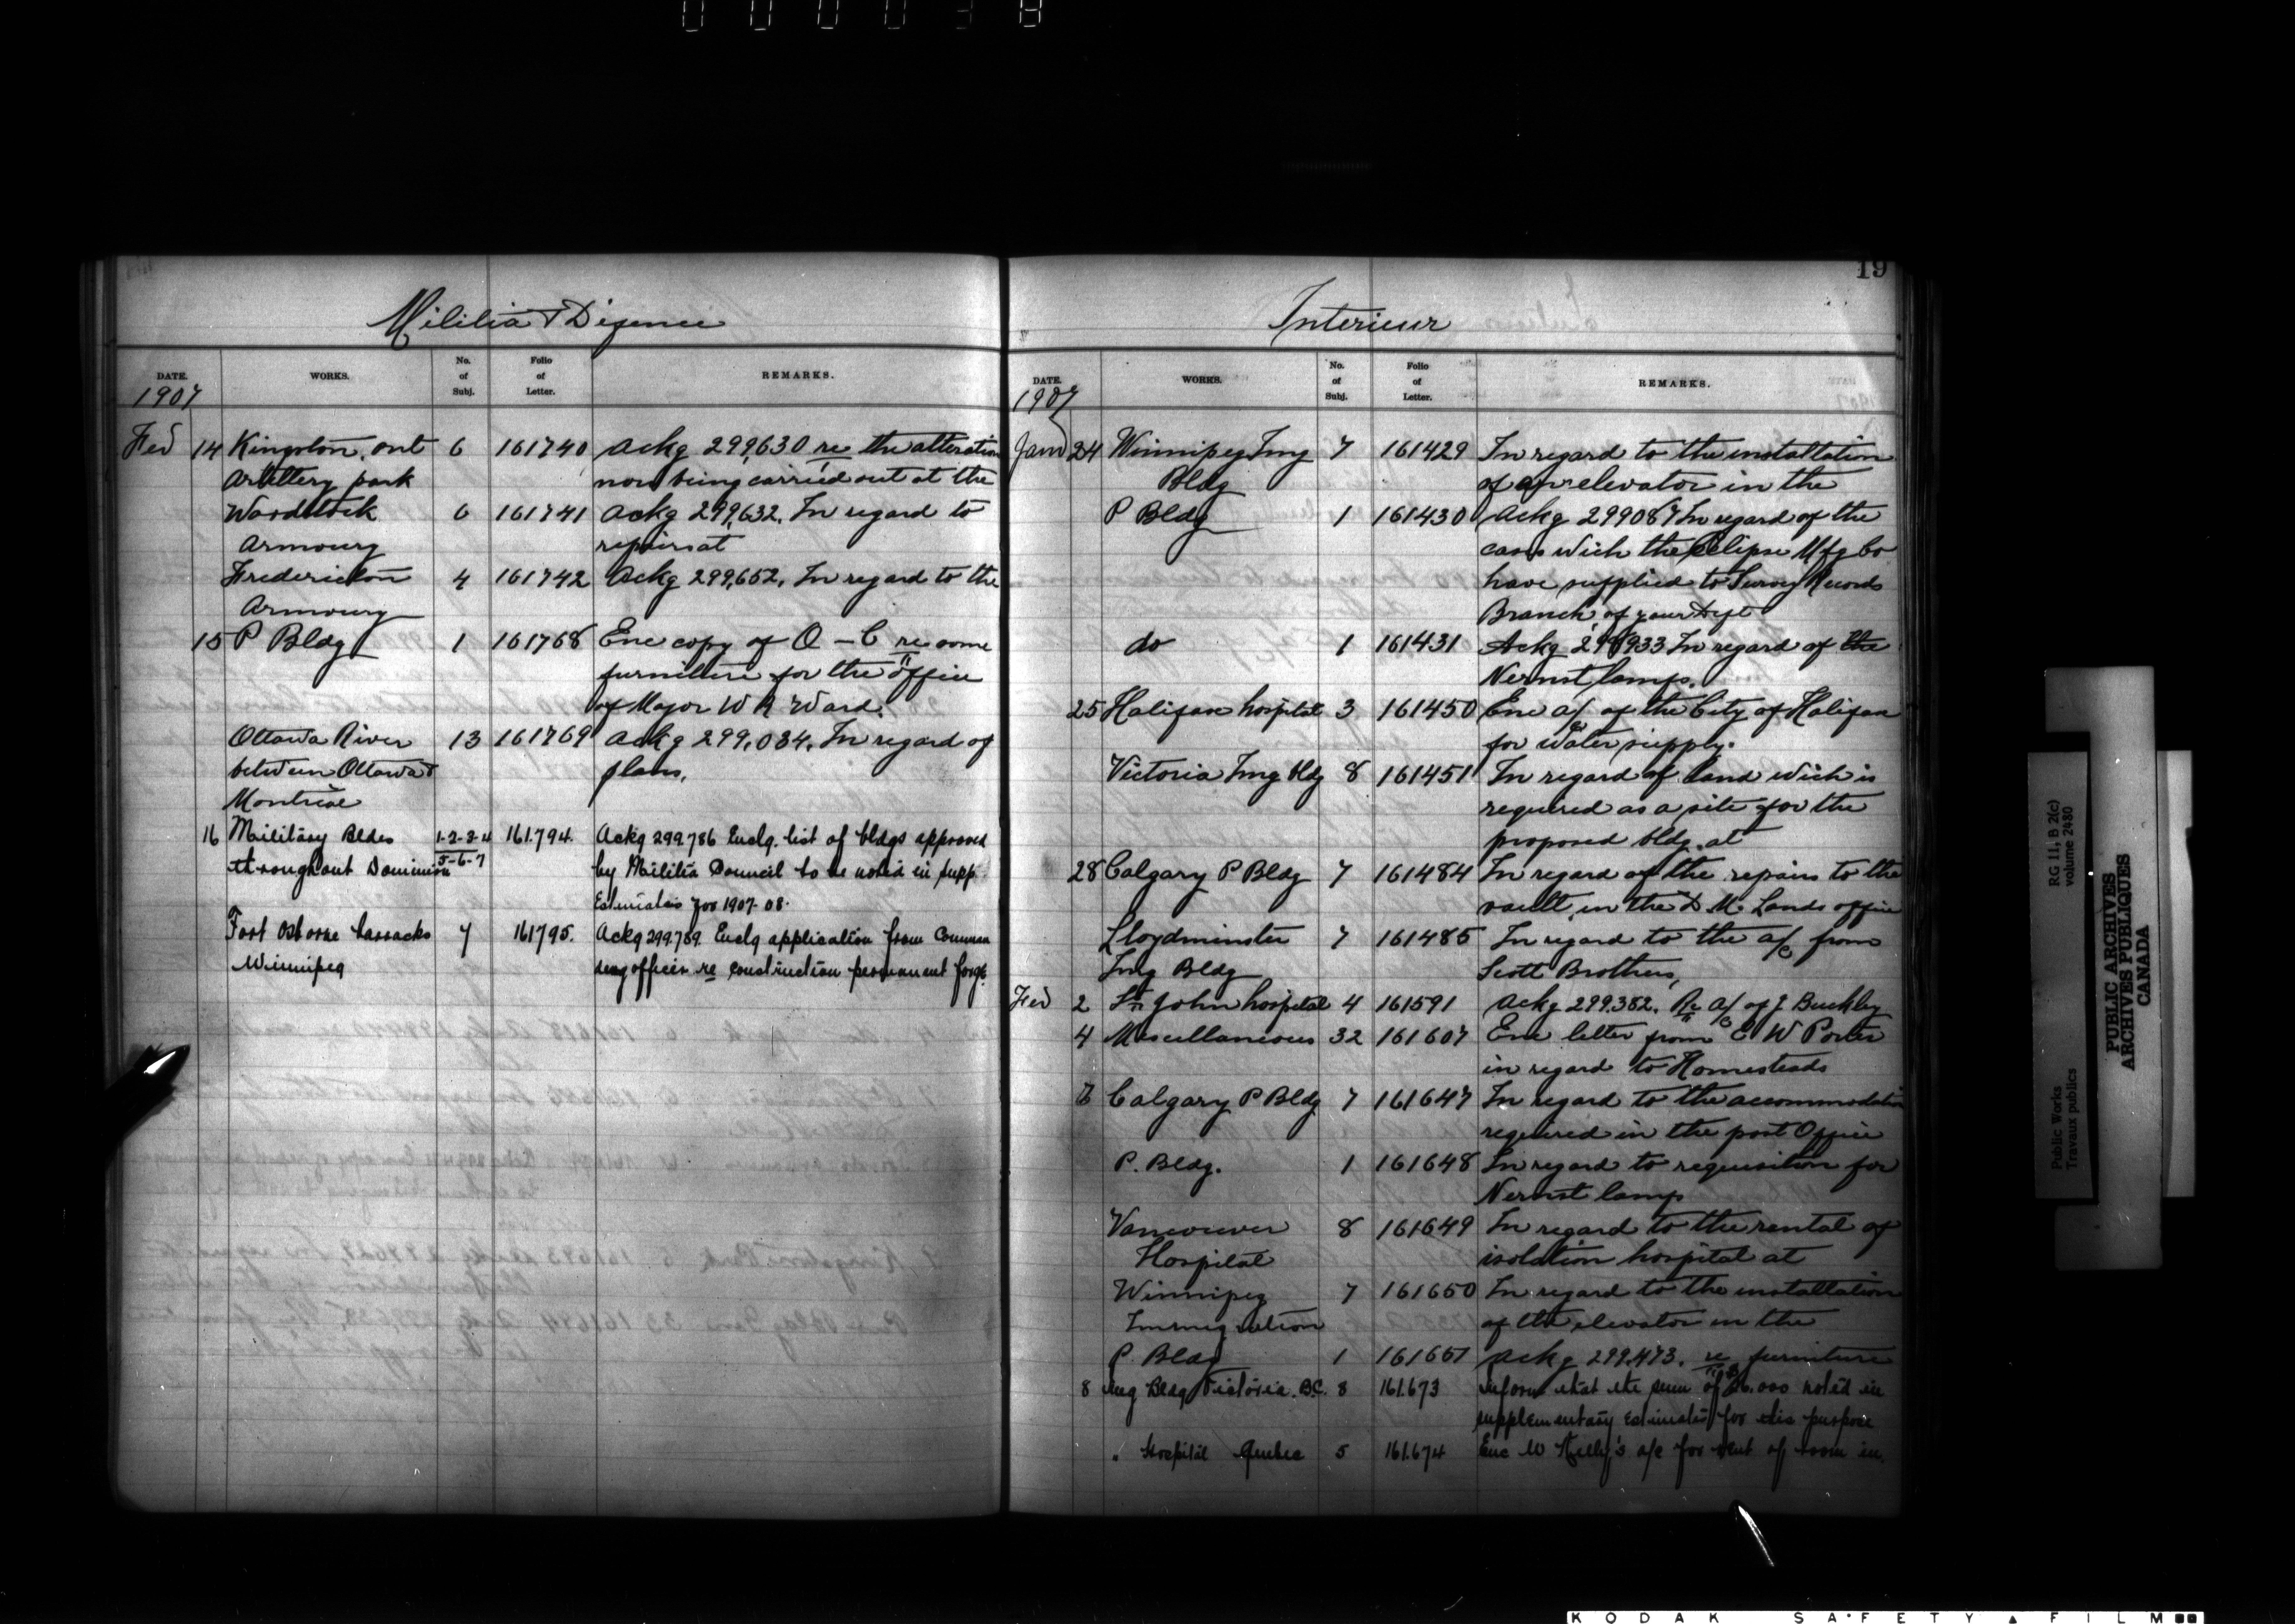 000038
Militia & Defence
DATE. WORKS. No. of Subj. Folio of Letter. REMARKS.
1907
Feb 14 Kingston, Ont 6 161740 Ackg 299,630 re the alteration
Artillery park now being carried out at the
Woodstock 6 161741 Ackg 299,632. In regard to
Armoury repairs at
Fredericton 4 161742 Ackg 299,652. In regard to the
Armoury
15 P Bldg 1 161768 Enc copy of O-C re some
furniture for the office
of Major W R Ward.
Ottawa River 13 161769 Ackg 299,034. In regard of
between Ottawa & plans.
Montreal
16 Military Bldgs 1-2-3-4 161.794. Ackg 299.786 Enclg. list of bldgs approved
throughout Dominion 5-6-7 by Militia Council to be noted in supp.
Estimates for 1907-08.
Fort Osborne barracks 7 161795. Ackg 299.789. Enclg application from Comman
Winnipeg ding officer re construction permanent forge.
19
Interieur
DATE. WORKS. No. of Subj. Folio of Letter. REMARKS.
1907
Jan 24 Winnipeg Img 7 161429 In regard to the installation
Bldg of an elevator in the
P Bldg 1 161430 Ackg 299087 In regard of the
cases wich the Eclipse Mfg Co
have supplied to Survey Records
Branch of your Dept
do 1 161431 Ackg 298933 In regard of the
Nernst lamps.
25 Halifax hospital 3 161450 Enc a/c of the City of Halifax
for water supply.
Victoria Img bldg 8 161451 In regard of land wich is
required as a site for the
proposed bldg. at
28 Calgary P Bldg 7 161484 In regard of the repairs to the
vault in the D. M. Lands office
Lloydminster 7 161485 In regard to the a/c from
Img Bldg Scott Brothers,
Feb 2 St John hospital 4 161591 Ackg 299.382. Re a/c of J Buckley
4 Miscellaneous 32 161607 Enc letter from E W Porter
in regard to Homesteads
7 Calgary P Bldg 7 161647 In regard to the accommodation
required in the post Office
P. Bldg. 1 161648 In regard to requisition for
Nernst lamp
Vancouver 8 161649 In regard to the rental of
Hospital isolation hospital at
Winnipeg 7 161650 In regard to the installation
Immigration of the elevator in the
P. Bldg 1 161651 Ackg 299.473. re furniture
8 Img Bldg Victoria. B.C. 8 161.673 Inform that the sum of 26.000 noted in
supplementary Estimates for this purpose
" Hospital Quebec 5 161.674 Enc W Kelly's a/c for rent of room in.
RG 11, B 2(c)
volume 2480
Public Works
Travaux publics
PUBLIC ARCHIVES
ARCHIVES PUBLIQUES
CANADA
KODAK SAFETY FILM